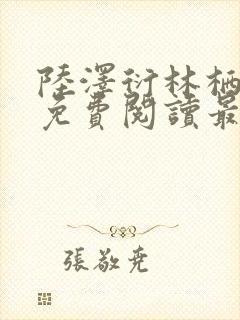 陸澤衍林栖
免費閱讀最
張敬堯